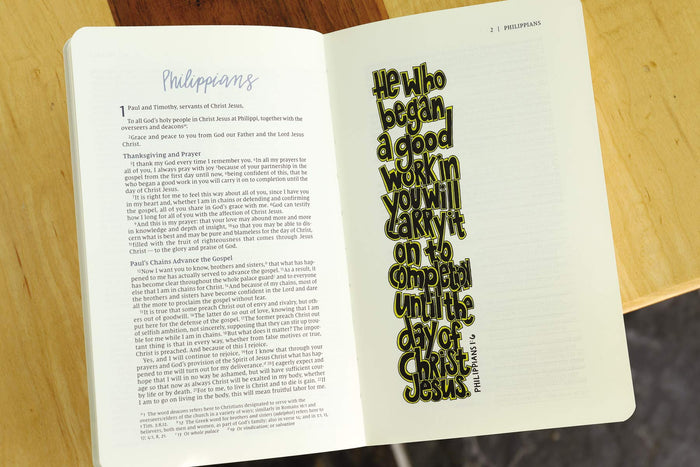 Philippians
1 Paul and Timothy, servants of Christ Jesus,
To all God's holy people in Christ Jesus at Philippi, together with the
overseers and deacons:
2Grace and peace to you from God our Father and the Lord Jesus
Christ.
Thanksgiving and Prayer
3I thank my God every time I remember you. 4In all my prayers for
all of you, I always pray with joy 5because of your partnership in the
gospel from the first day until now, 6being confident of this, that he
who began a good work in you will carry it on to completion until the
day of Christ Jesus.
7It is right for me to feel this way about all of you, since I have you
in my heart and, whether I am in chains or defending and confirming
the gospel, all of you share in God's grace with me. 8God can testify
how I long for all of you with the affection of Christ Jesus.
9And this is my prayer: that your love may abound more and more
in knowledge and depth of insight, 10so that you may be able to dis-
cern what is best and may be pure and blameless for the day of Christ,
11filled with the fruit of righteousness that comes through Jesus
Christ — to the glory and praise of God.
Paul's Chains Advance the Gospel
12Now I want you to know, brothers and sisters, that what has hap-
pened to me has actually served to advance the gospel. 13As a result, it
has become clear throughout the whole palace guard and to everyone
else that I am in chains for Christ. 14And because of my chains, most of
the brothers and sisters have become confident in the Lord and dare
all the more to proclaim the gospel without fear.
15It is true that some preach Christ out of envy and rivalry, but oth-
ers out of goodwill. 16The latter do so out of love, knowing that I am
put here for the defense of the gospel. 17The former preach Christ out
of selfish ambition, not sincerely, supposing that they can stir up trou-
ble for me while I am in chains. 18But what does it matter? The impor-
tant thing is that in every way, whether from false motives or true,
Christ is preached. And because of this I rejoice.
Yes, and I will continue to rejoice, 19for I know that through your
prayers and God's provision of the Spirit of Jesus Christ what has hap-
pened to me will turn out for my deliverance. 20I eagerly expect and
hope that I will in no way be ashamed, but will have sufficient cour-
age so that now as always Christ will be exalted in my body, whether
by life or by death. 21For to me, to live is Christ and to die is gain. 22If
I am to go on living in the body, this will mean fruitful labor for me.
1 The word deacons refers here to Christians designated to serve with the
overseers/elders of the church in a variety of ways; similarly in Romans 16:1 and
1 Tim. 3:8,12. 12 The Greek word for brothers and sisters (adelphoi) refers here to
believers, both men and women, as part of God's family; also in verse 14; and in 3:1, 13,
17; 4:1, 8, 21. 13 Or whole palace 19 Or vindication; or salvation
2 | PHILIPPIANS
He who
began
a good
work in
you will
carry it
on to
completion
until the
day of
Christ
Jesus.
PHILIPPIANS 1:6